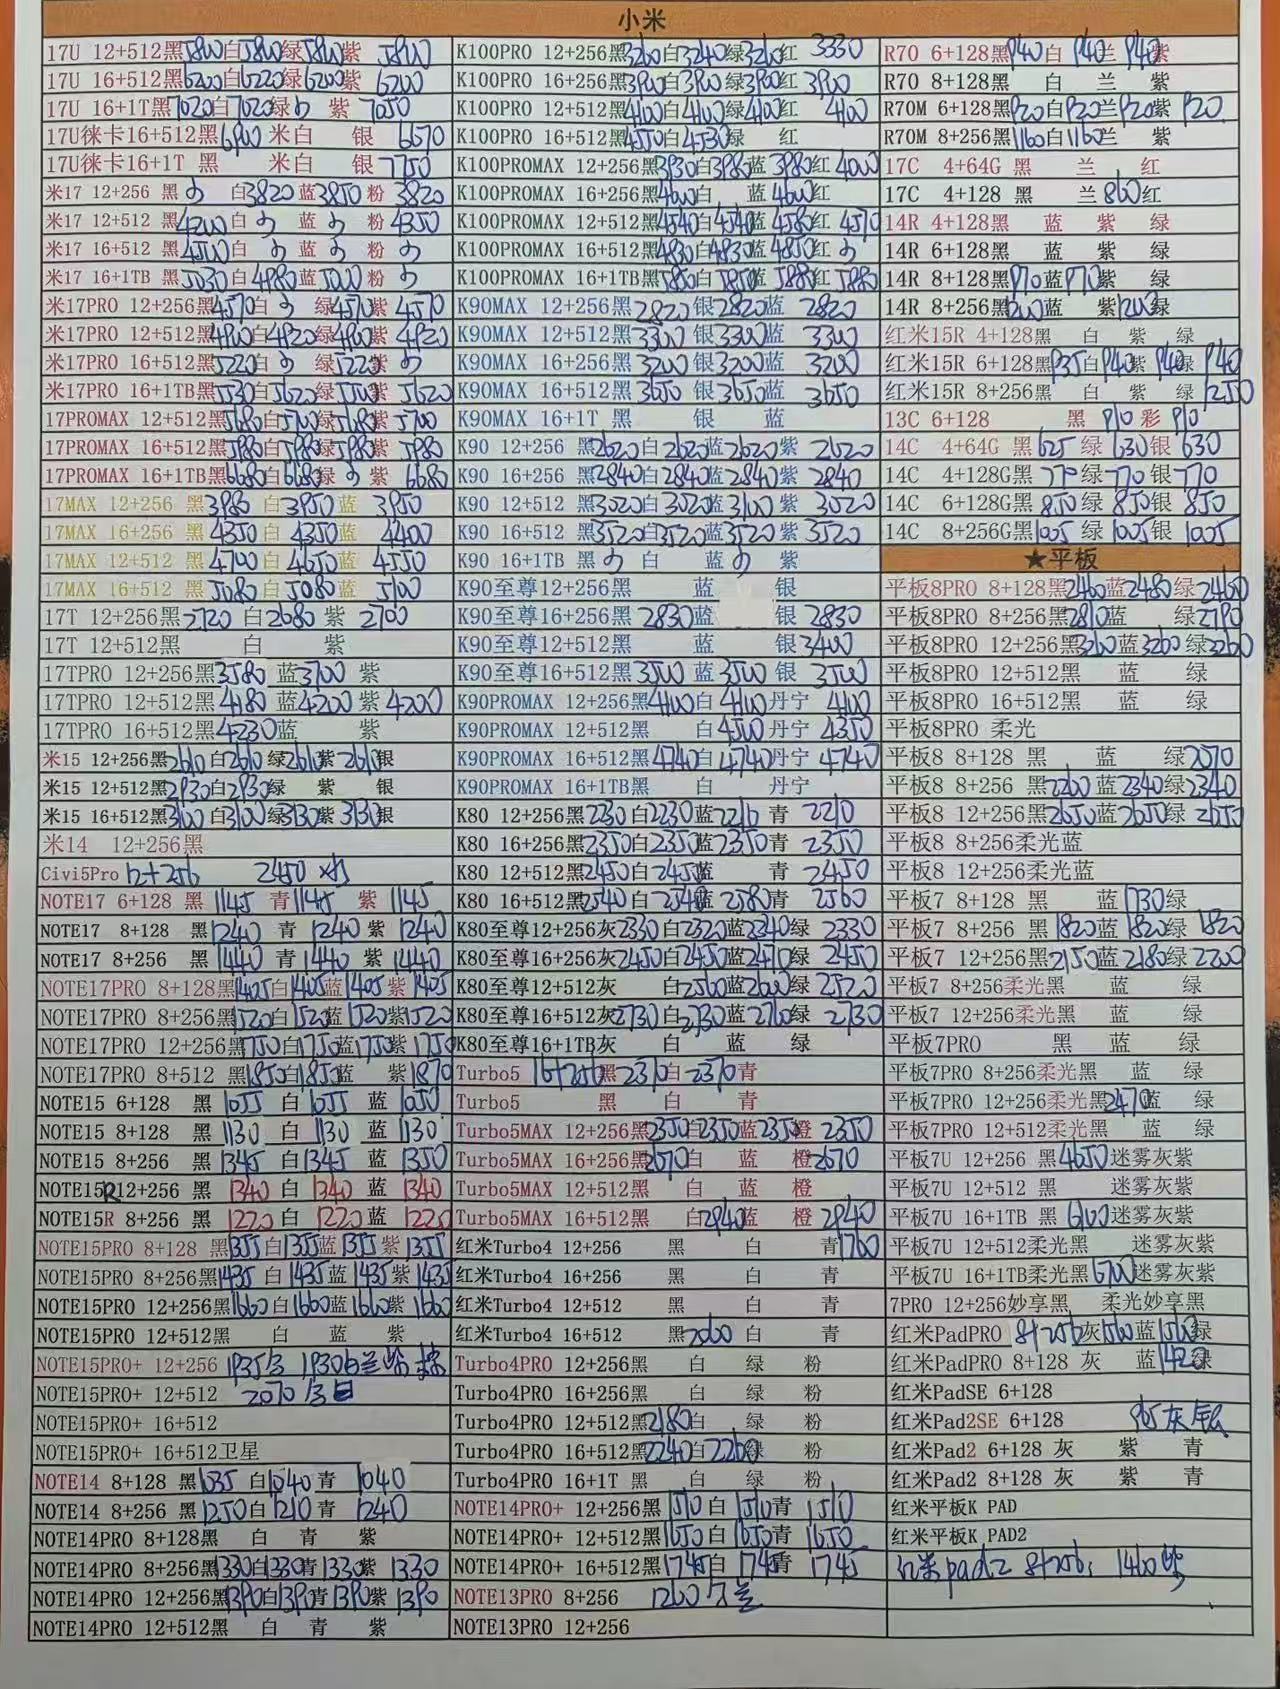 小米
17U 12+512黑5800白5800绿5800紫 5800
17U 16+512黑6200白6220绿6200紫 6200
17U 16+1T黑7020白7020绿 紫 7050
17U徕卡16+512黑6900 米白 银 6670
17U徕卡16+1T 黑 米白 银7750
米17 12+256 黑 白3820蓝3850粉 3820
米17 12+512 黑4200白 蓝 粉 4350
米17 16+512 黑4500白 蓝 粉
米17 16+1TB 黑5030白4980蓝5000粉
米17PRO 12+256黑4570白 绿4570紫 4570
米17PRO 12+512黑4900白4920绿4900紫 4920
米17PRO 16+512黑5220白 绿5220紫
米17PRO 16+1TB黑5530白5620绿5500紫 5620
17PROMAX 12+512黑5680白5700绿5680紫 5700
17PROMAX 16+512黑5980白5980绿5980紫 5980
17PROMAX 16+1TB黑6680白6680绿 紫 6680
17MAX 12+256 黑 3980 白3950蓝 3950
17MAX 16+256 黑 4350 白 4350蓝 4400
17MAX 12+512 黑 4700 白 4650蓝 4550
17MAX 16+512 黑 5080 白 5080蓝 5100
17T 12+256黑2720 白2680 紫 2700
17T 12+512黑 白 紫
17TPRO 12+256黑3580 蓝3700 紫
17TPRO 12+512黑4180 蓝4200 紫4200
17TPRO 16+512黑4230蓝 紫
米15 12+256黑2610白2610绿2610紫2610银
米15 12+512黑2930白2930绿 紫 银
米15 16+512黑3100白3100绿3130紫3130银
米14 12+256黑
Civi5Pro 12+256 2450
NOTE17 6+128 黑 1145 青1145 紫 1145
NOTE17 8+128 黑1240 青 1240 紫 1240
NOTE17 8+256 黑1440 青 1440 紫 1440
NOTE17PRO 8+128黑1405白1405蓝1405紫1405
NOTE17PRO 8+256黑1520白1520蓝1520紫1520
NOTE17PRO 12+256黑1750白1750蓝1750紫1750
NOTE17PRO 8+512 黑1850白1855蓝 紫1870
NOTE15 6+128 黑 1055 白 1055 蓝 1050
NOTE15 8+128 黑 1130 白 1130 蓝 1130
NOTE15 8+256 黑 1345 白 1345 蓝 1350
NOTE15R12+256 黑 1340 白 1340 蓝 1340
NOTE15R 8+256 黑 1220 白 1220 蓝 1225
NOTE15PRO 8+128 黑1355白1355蓝1355紫1355
NOTE15PRO 8+256黑1435 白1435蓝1435紫1435
NOTE15PRO 12+256黑1660白1660蓝1660紫1660
NOTE15PRO 12+512黑 白 蓝 紫
NOTE15PRO+ 12+256 1935 1930白兰紫
NOTE15PRO+ 12+512 2070
NOTE15PRO+ 16+512
NOTE15PRO+ 16+512卫星
NOTE14 8+128 黑1035 白1040青 1040
NOTE14 8+256 黑1250 白1210青 1240
NOTE14PRO 8+128黑 白 青 紫
NOTE14PRO 8+256黑1330白1330青1330紫 1330
NOTE14PRO 12+256黑1390白1390青1390紫 1390
NOTE14PRO 12+512黑 白 青 紫
K100PRO 12+256黑3260白3240绿3260红 3330
K100PRO 16+256黑3900白3900绿3900红 3900
K100PRO 12+512黑4100白4100绿4100红 4100
K100PRO 16+512黑4550白4530绿 红
K100PROMAX 12+256黑3930白3980蓝3980红4000
K100PROMAX 16+256黑4600白 蓝4600红
K100PROMAX 12+512黑4540白4540蓝4560红4570
K100PROMAX 16+512黑4830白4830蓝4850红
K100PROMAX 16+1TB黑5850白5850蓝5880红5880
K90MAX 12+256黑 2820银2820蓝 2820
K90MAX 12+512黑 3300银3300蓝 3300
K90MAX 16+256黑 3200 银3200蓝 3200
K90MAX 16+512黑 3650 银3650蓝 3650
K90MAX 16+1T 黑 银 蓝
K90 12+256 黑2620白2620蓝2620紫 2620
K90 16+256 黑2840白2840蓝2840紫 2840
K90 12+512 黑3020白3020蓝3100紫 3020
K90 16+512 黑3520白3520蓝3520紫 3520
K90 16+1TB 黑 白 蓝 紫
K90至尊12+256黑 蓝 银
K90至尊16+256黑 2830蓝 银 2830
K90至尊12+512黑 蓝 银3400
K90至尊16+512黑 3500 蓝3500银 3500
K90PROMAX 12+256黑4100白 4100丹宁 4100
K90PROMAX 12+512黑 白 4500丹宁 4350
K90PROMAX 16+512黑4740白 4740丹宁 4740
K90PROMAX 16+1TB黑 白 丹宁
K80 12+256黑2230白2230蓝2210青 2210
K80 16+256黑2350白2350蓝2350青 2350
K80 12+512黑2450白2455蓝 青 2450
K80 16+512黑2540白2540蓝2580青 2560
K80至尊12+256灰2330白2320蓝2340绿 2330
K80至尊16+256灰2450白2450蓝2470绿 2450
K80至尊12+512灰 白2560蓝2600绿 2520
K80至尊16+512灰2730白2730蓝2760绿 2730
K80至尊16+1TB灰 白 蓝 绿
Turbo5 16+256黑2370白2370青
Turbo5 黑 白 青
Turbo5MAX 12+256黑2350白2350蓝2350橙 2350
Turbo5MAX 16+256黑2670白 蓝 橙2670
Turbo5MAX 12+512黑 白 蓝 橙
Turbo5MAX 16+512黑 白2940蓝 橙 2940
红米Turbo4 12+256 黑 白 青1760
红米Turbo4 16+256 黑 白 青
红米Turbo4 12+512 黑 白 青
红米Turbo4 16+512 黑2060 白 青
Turbo4PRO 12+256黑 白 绿 粉
Turbo4PRO 16+256黑 白 绿 粉
Turbo4PRO 12+512黑2180白 绿 粉
Turbo4PRO 16+512黑2240白2260绿 粉
Turbo4PRO 16+1T 黑 白 绿 粉
NOTE14PRO+ 12+256黑 1510白 1510青 1510
NOTE14PRO+ 12+512黑1650白 1650青 1650
NOTE14PRO+ 16+512黑1745白 1745青 1745
NOTE13PRO 8+256 1260
NOTE13PRO 12+256
R70 6+128黑940白 940兰 940紫
R70 8+128黑 白 兰 紫
R70M 6+128黑920白920兰920紫 920
R70M 8+256黑1160白1160兰 紫
17C 4+64G 黑 兰 红
17C 4+128 黑 兰860红
14R 4+128黑 蓝 紫 绿
14R 6+128黑 蓝 紫 绿
14R 8+128黑970蓝970紫 绿
14R 8+256黑1200蓝 紫1200绿
红米15R 4+128黑 白 紫 绿
红米15R 6+128黑935白940紫 940绿 940
红米15R 8+256黑 白 紫 绿1250
13C 6+128 黑 910 彩 910
14C 4+64G 黑625 绿 630银 630
14C 4+128G黑 770绿 770银 770
14C 6+128G黑 850绿 850银 850
14C 8+256G黑1005 绿 1005银 1005
★平板
平板8PRO 8+128黑2460蓝2480绿2460
平板8PRO 8+256黑2810蓝 绿2790
平板8PRO 12+256黑3260蓝3260绿3260
平板8PRO 12+512黑 蓝 绿
平板8PRO 16+512黑 蓝 绿
平板8PRO 柔光
平板8 8+128 黑 蓝 绿2070
平板8 8+256 黑2260蓝2340绿2340
平板8 12+256黑2650蓝2650绿2650
平板8 8+256柔光蓝
平板8 12+256柔光蓝
平板7 8+128黑 蓝1730绿
平板7 8+256 黑1820蓝1820绿 1820
平板7 12+256黑2150蓝2180绿2200
平板7 8+256柔光黑 蓝 绿
平板7 12+256柔光黑 蓝 绿
平板7PRO 黑 蓝 绿
平板7PRO 8+256柔光黑 蓝 绿
平板7PRO 12+256柔光黑2470蓝 绿
平板7PRO 12+512柔光黑 蓝 绿
平板7U 12+256 黑4650迷雾灰紫
平板7U 12+512 黑 迷雾灰紫
平板7U 16+1TB 黑 6100迷雾灰紫
平板7U 12+512柔光黑 迷雾灰紫
平板7U 16+1TB柔光黑6700迷雾灰紫
7PRO 12+256妙享黑 柔光妙享黑
红米PadPRO 8+256灰1560蓝1560绿
红米PadPRO 8+128 灰 蓝1420绿
红米PadSE 6+128
红米Pad2SE 6+128 965灰 银
红米Pad2 6+128 灰 紫 青
红米Pad2 8+128 灰 紫 青
红米平板K PAD
红米平板K PAD2
红米pad2 8+256: 1460紫